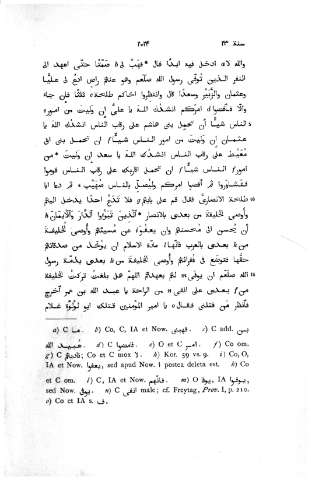 سنة ٢٣ ٢٧٢٤
والله لا ادخل فيه ابدًا قال فهَبْ لى صَمْتًا حتى اعهد الى
النفر الذين توفّى رسول الله صلعم وهو عنهم راضٍ ادعُ لى عليًّا
وعثمان والزُّبَيْر وسعدًا قال وانتظروا اخاكم طلحة ثلثًا فان جاء
والّا فاقضوا امركم انشدك الله يا علىّ إن وليتَ من امور
الناس شيئًا أن تحمل بنى هاشم على رقاب الناس انشدك الله يا
عثمان إن وليتَ من امور الناس شيئًا أن تحمل بنى ابى
مُعَيْط على رقاب الناس انشدك الله يا سعد إن وليتَ من
امور الناس شيئًا أن تحمل اقاربك على رقاب الناس قوموا
فتشاوروا ثم اقضوا امركم وليُصَلِّ بالناس صُهَيْب ثم دعا ابا
طلحة الانصارىّ فقال قم على بابهم فلا تَدَعْ احدًا يدخل اليهم
وأوصى الخليفة من بعدى بالانصار الَّذِينَ تَبَوَّءُوا ٱلدَّارَ وَٱلْإِيمَانَ
أن يُحسن الى مُحسنهم وان يعفو عن مُسيئهم وأوصى الخليفة
من بعدى بالعرب فانّها مادّة الاسلام ان يؤخذ من صدقاتهم
حقّها فتُوضَع فى فقرائهم وأوصى الخليفة من بعدى بذمّة رسول
الله صلعم ان يوفى لهم بعهدهم اللهمّ هل بلّغتُ تركتُ الخليفة
من بعدى على انقى من الراحة يا عبد الله بن عمر اخرج
فانظر مَن قتلنى فقال يا امير المؤمنين قتلك ابو لؤلؤة غلام
a) C هنا. b) Co, C, IA et Now. فهبنى. c) C add. بين.
d) C فامضوا. e) O et C امر. f) Co om. عبيد الله
g) C ; Co et C mox لا. h) Kor. 59 vs. 9. i) Co, O,
IA et Now. يعفوا, sed apud Now. ا postea deleta est. k) Co
et C om. l) C, IA et Now. فانّهم. m) O يوفا, IA يوفوا,
sed Now. يوفى. n) C انفى male; cf. Freytag, Prov. I, p. 210.
o) Co et IA s. ف.